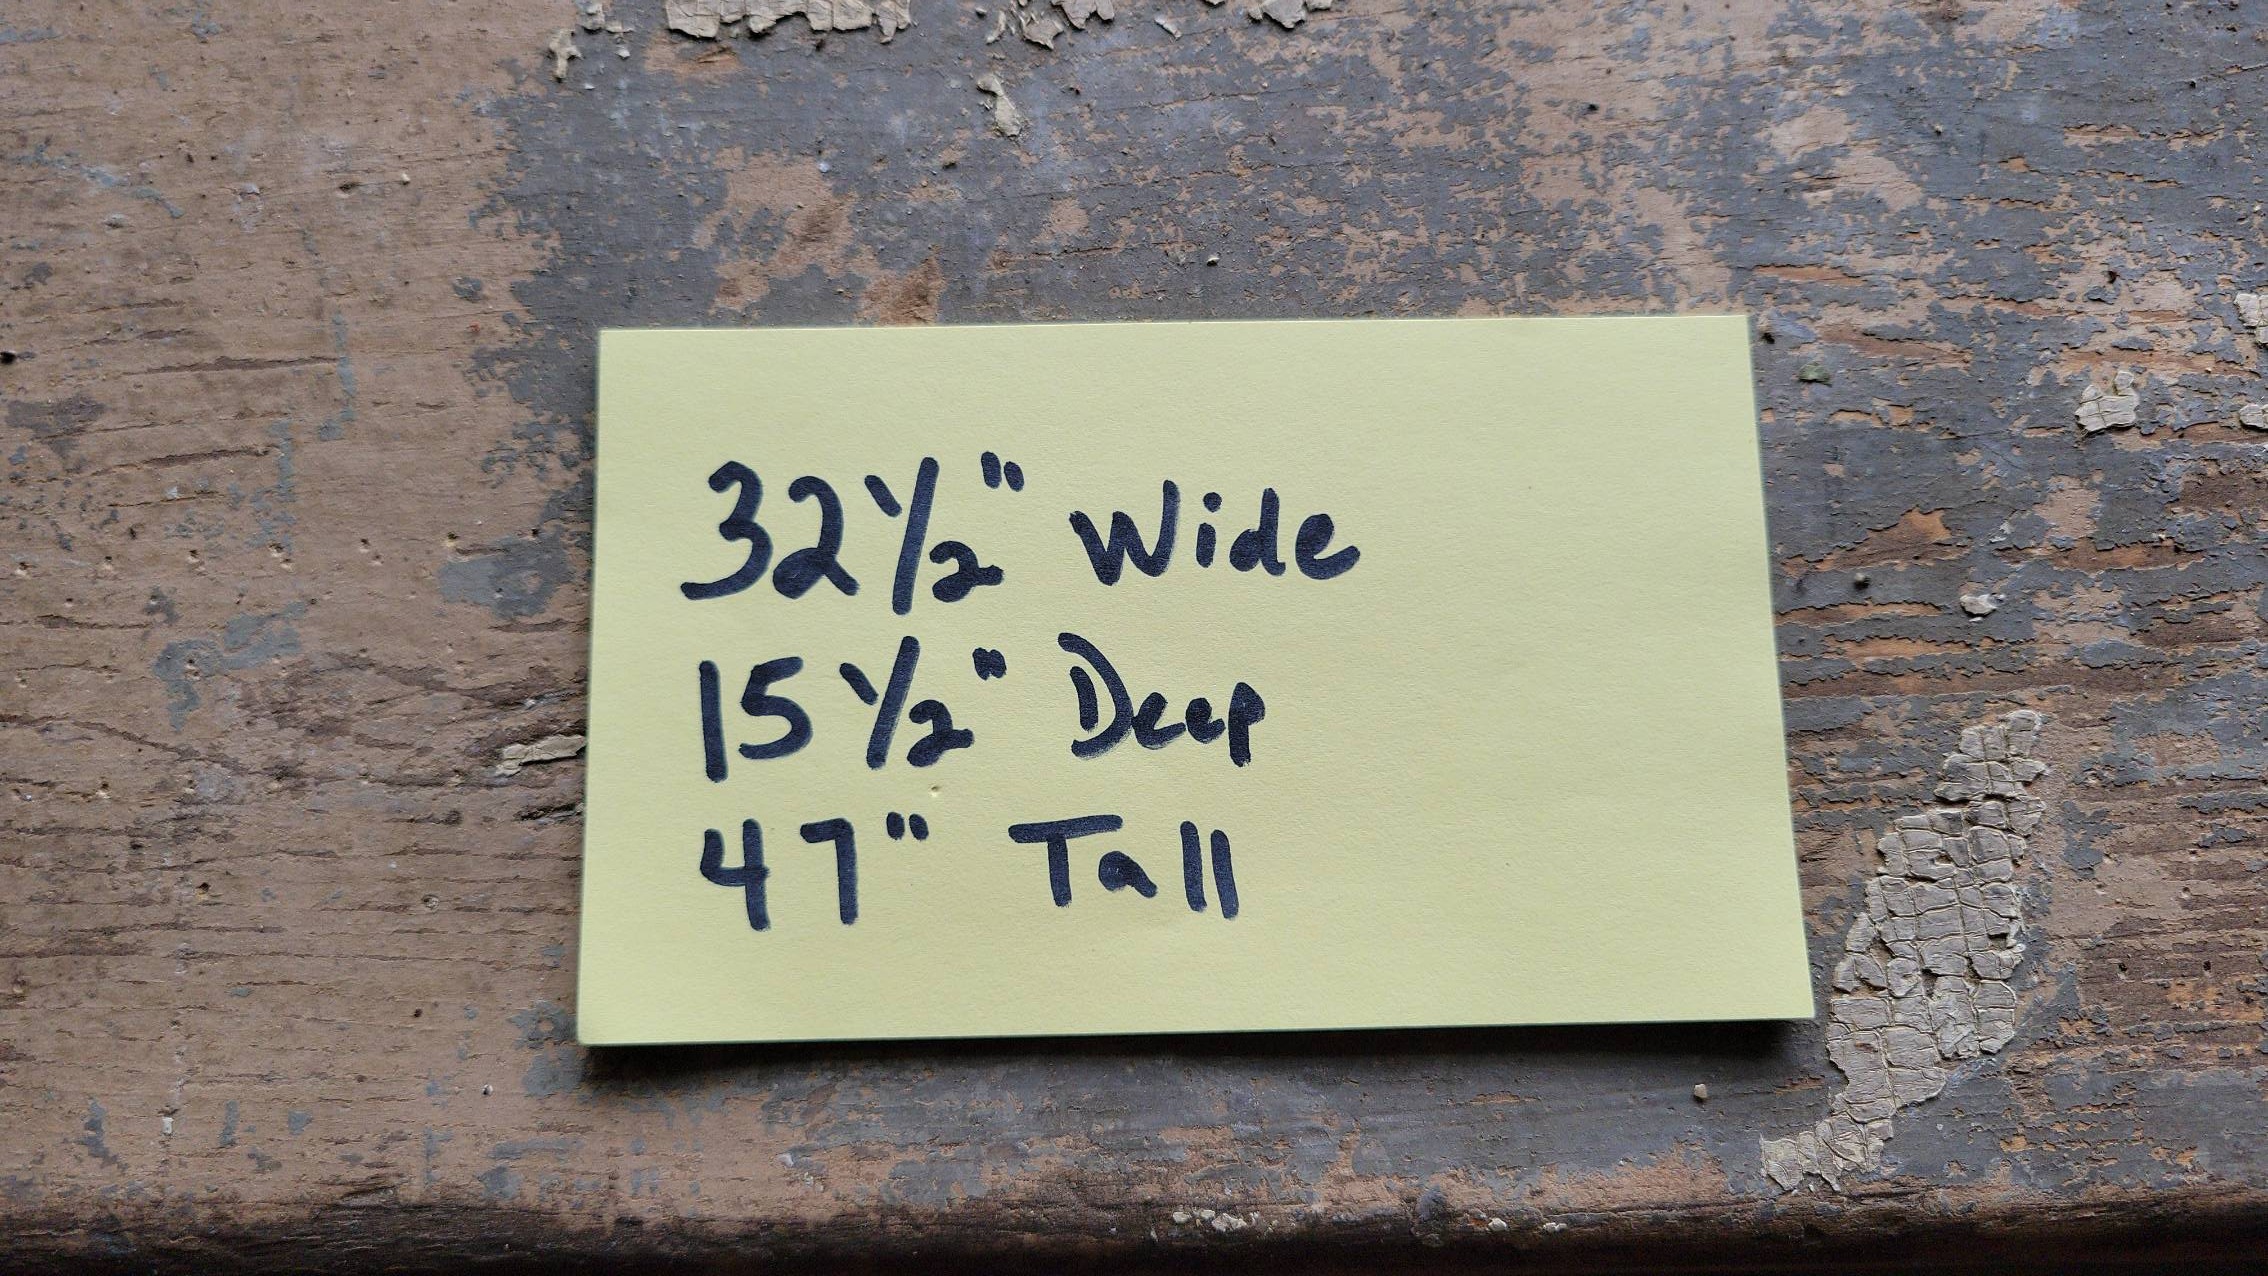 32 1/2" Wide
15 1/2" Deep
47" Tall